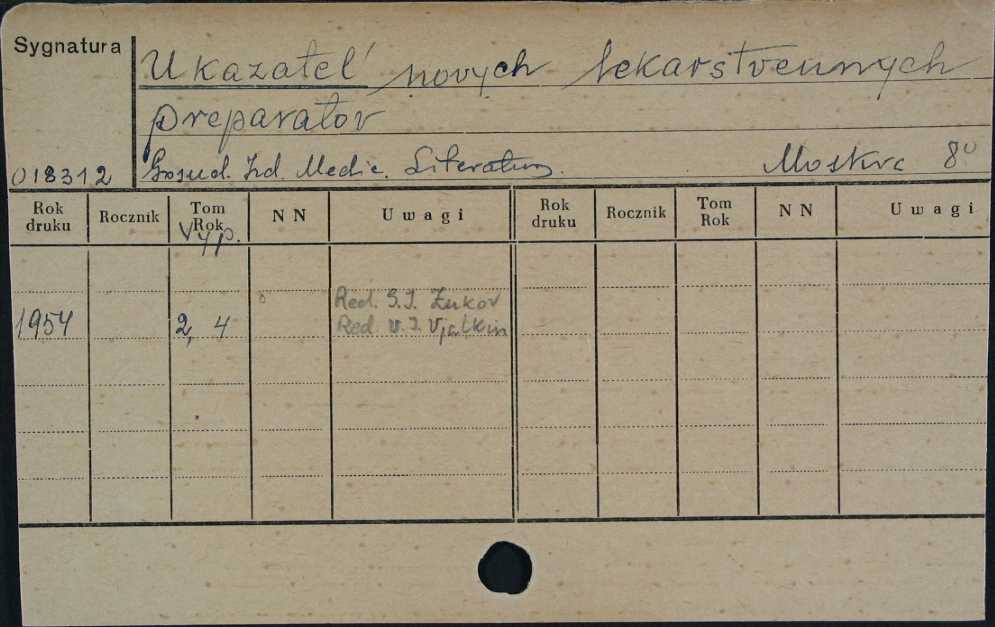 Sygnatura
Ukazatel' novych lekarstvennych
preparatov
018312 Gosud. Izd. Medic. Literatury. Moskva 8º
Rok druku Rocznik Tom Rok NN Uwagi Rok druku Rocznik Tom Rok NN Uwagi
Vyp.
Red. S.I. Zukov
1954 2, 4 Red. V.I. Vjalkin